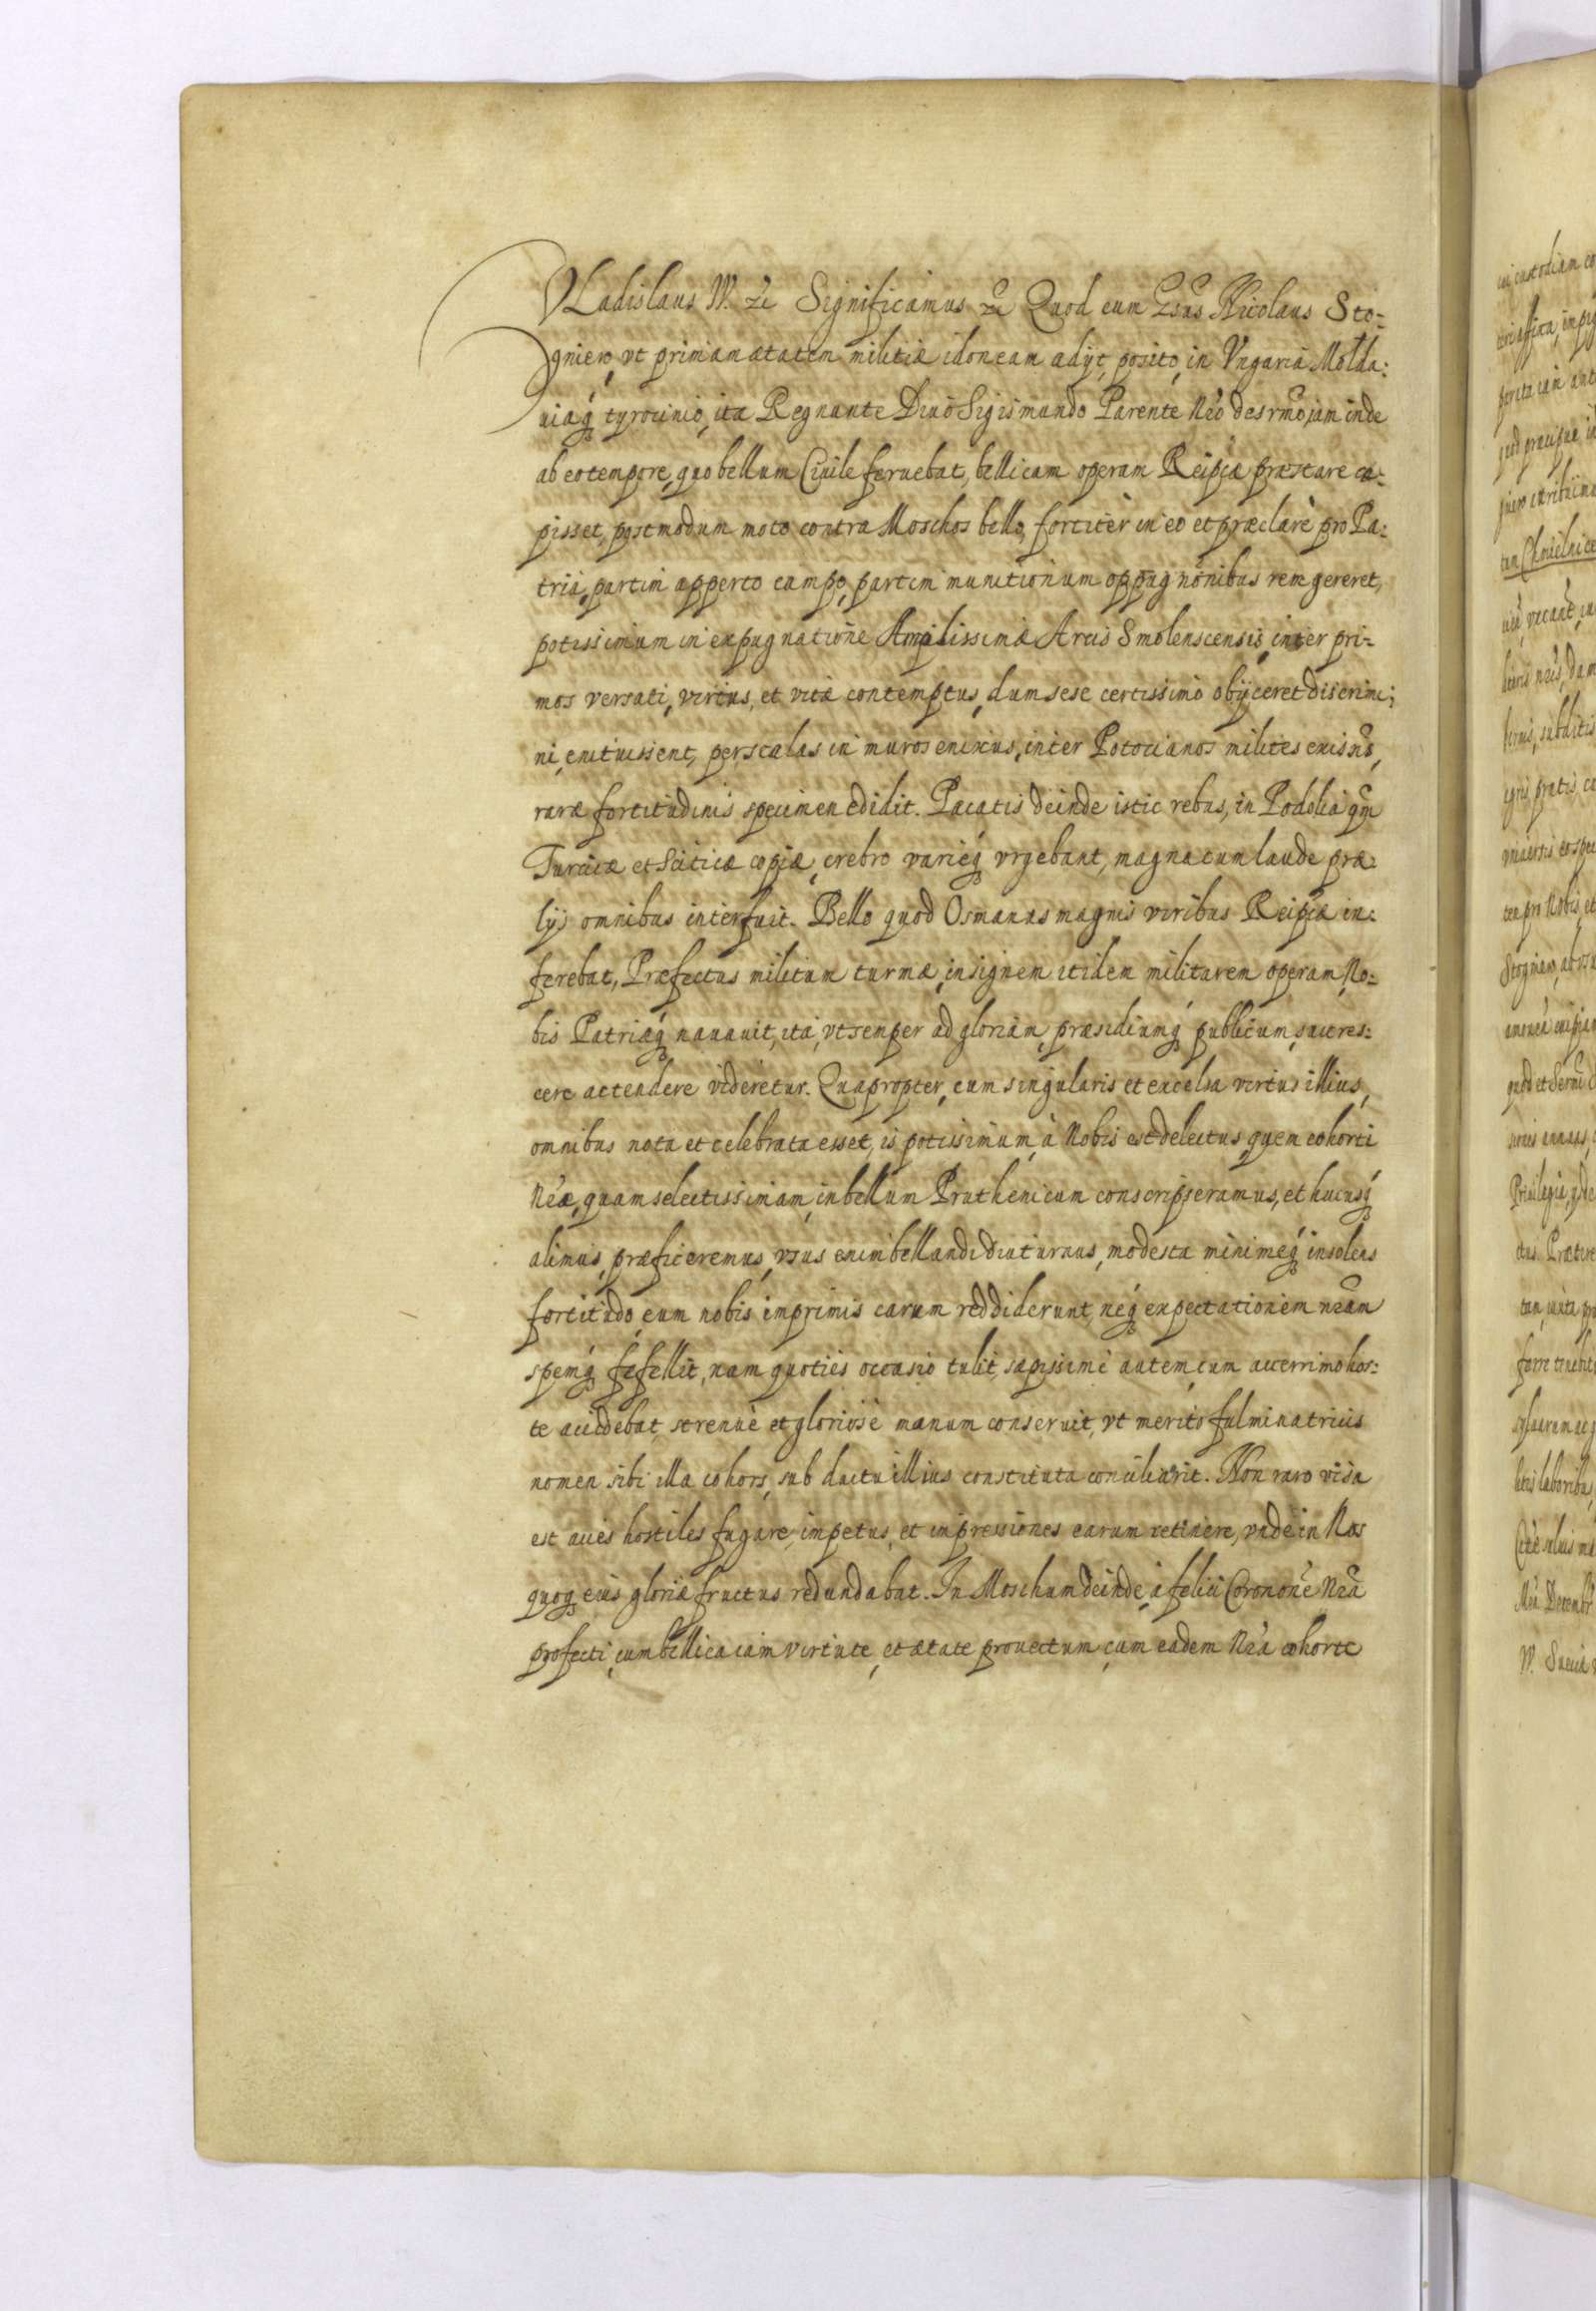 VLadislaus IV. &c Significamus &c Quod cum Gsus Nicolaus Sto-
gniew, vt primam ætatem militiæ idoneam adijt, posito, in Vngaria Molda:
uiaq́ tyrocinio, ita Regnante Diuo Sigismundo Parente Nr̃o desr̃mo, iam inde
ab eo tempore, quo bellum Ciuile feruebat, bellicam operam Reipcæ præstare cæ-
pisset, postmodum moto contra Moschos bello, fortitèr in eo et præclarè pro Pa-
tria, partim apperto campo, partim munitionum oppugnõnibus rem gereret,
potissimum in expugnatione Amplissimæ Arcis Smolenscensis, inter pri-
mos versati, virtus, et vitæ contemptus, dum sese certissimo obijceret discrimi:
ni, enituissent, per scalas in muros enixus, inter Potocianos milites enisus,
raræ fortitudinis specimen edidit. Pacatis deinde istic rebus, in Podolia qm̃
Turcicæ et Sciticæ copiæ, crebro varieq́ vrgebant, magna cum laude præ-
lijs omnibus interfuit. Bello quod Osmanus magnis viribus Reipcæ in-
ferebat, Præfectus militum turmæ, insignem itidem militarem operam, No-
bis Patriæq́ nauauit, ita, vt semper ad gloriam, præsidiumq́ publicum, succres-
cere ac tendere videretur. Quapropter, cum singularis et excelsa virtus illius,
omnibus nota et celebrata esset, is potissimum, à Nobis est delectus, quem cohorti
Nr̃æ, quam selectissimam, in bellum Pruthenicum conscripseramus, et hucusq́
alimus, præficeremus, vsus enim bellandi diuturnus, modesta minimeq́ insolens
fortitudo, eum nobis imprimis carum reddiderunt, neq́ expectationem nr̃am
spemq́ fefellit, nam quoties occasio tulit, sæpissime autem, cum accerrimo hos-
te accidebat, strenuè et gloriosè manum conseruit, vt merito fulminatricis
nomen sibi illa cohors, sub ductu illius constituta conciliarit. Non raro visa
est acies hostiles fugare, impetus, et impressiones earum retinere, vnde in Nos
quoq́ eius gloriæ fructus redundabat. In Moschum deinde, à felici Coronõne Nr̃a
profecti, cum bellica iam virtute, et ætate prouectum, cum eadem Nr̃a cohorte